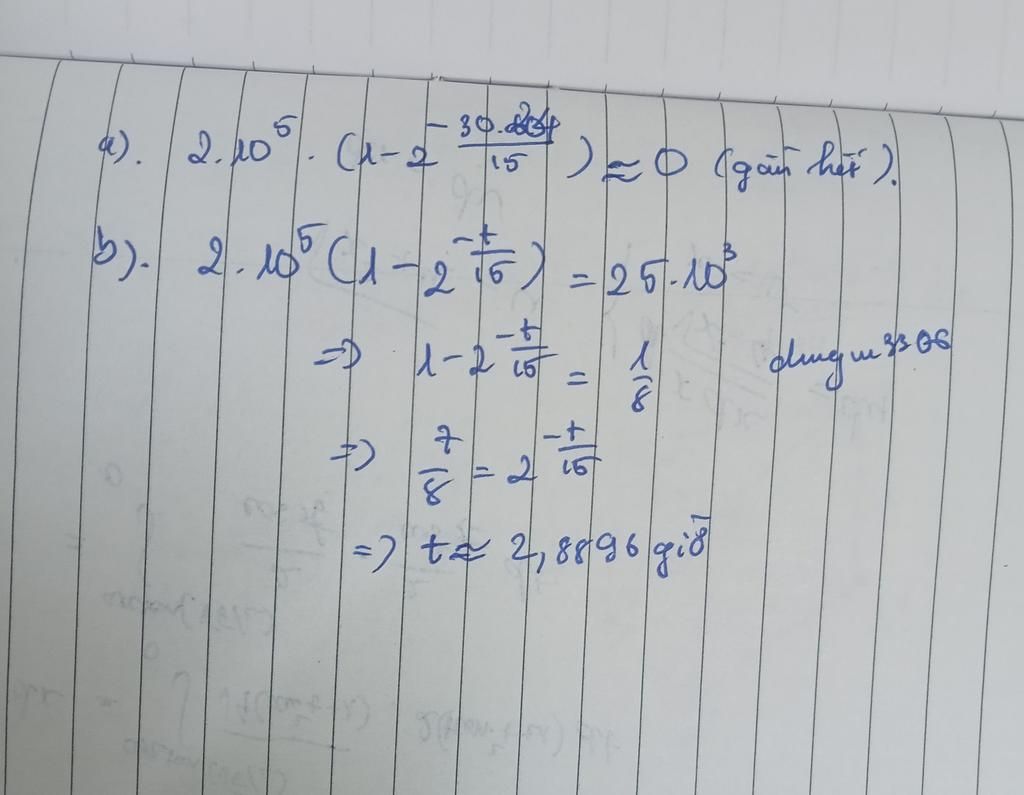 a). 2.10⁵.(1-2^(-30.24/15)) ≈ 0 (gần hết).
b). 2.10⁵(1-2^(-t/15)) = 25.10³
=> 1-2^(-t/15) = 1/8
dungm3306
=> 7/8 = 2^(-t/15)
=> t ≈ 2,8896 giờ